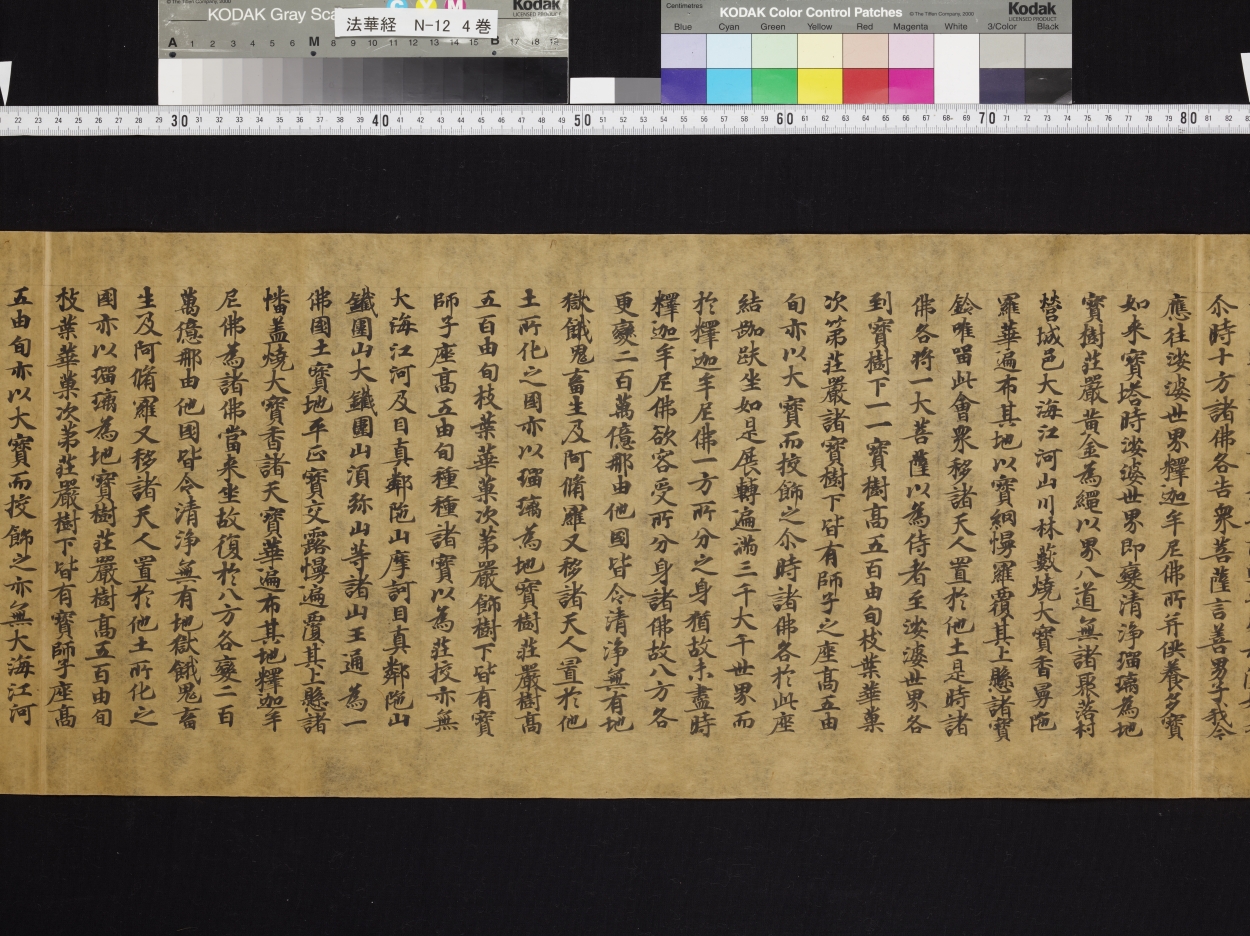 法華経 N-12 4巻
KODAK Gray Scale
Kodak
LICENSED PRODUCT
© The Tiffen Company, 2000
A 1 2 3 4 5 6 M 8 9 10 11 12 13 14 15 B 17 18 19
C Y M
Centimetres
KODAK Color Control Patches
© The Tiffen Company, 2000
Kodak
LICENSED PRODUCT
Blue Cyan Green Yellow Red Magenta White 3/Color Black
22 23 24 25 26 27 28 29 30 31 32 33 34 35 36 37 38 39 40 41 42 43 44 45 46 47 48 49 50 51 52 53 54 55 56 57 58 59 60 61 62 63 64 65 66 67 68 69 70 71 72 73 74 75 76 77 78 79 80 81 82
尒時十方諸佛各告衆菩薩言善男子我今
應往娑婆世界釋迦牟尼佛所并供養多寶
如来寶塔時娑婆世界即變清淨瑠璃為地
寶樹莊嚴黃金為繩以界八道無諸聚落村
營城邑大海江河山川林藪燒大寶香曼陁
羅華遍布其地以寶網幔羅覆其上懸諸寶
鈴唯留此會衆移諸天人置於他土是時諸
佛各將一大菩薩以為侍者至娑婆世界各
到寶樹下一一寶樹髙五百由旬枝葉華菓
次第莊嚴諸寶樹下皆有師子之座髙五由
旬亦以大寶而挍飾之尒時諸佛各於此座
結跏趺坐如是展轉遍滿三千大千世界而
於釋迦牟尼佛一方所分之身猶故未盡時
釋迦牟尼佛欲容受所分身諸佛故八方各
更變二百萬億那由他國皆令清淨無有地
獄餓鬼畜生及阿脩羅又移諸天人置於他
土所化之國亦以瑠璃為地寶樹莊嚴樹髙
五百由旬枝葉華菓次第嚴飾樹下皆有寶
師子座髙五由旬種種諸寶以為莊挍亦無
大海江河及目真鄰陁山摩訶目真鄰陁山
鐵圍山大鐵圍山湏弥山等諸山王通為一
佛國土寶地平正寶交露幔遍覆其上懸諸
幡盖燒大寶香諸天寶華遍布其地釋迦牟
尼佛為諸佛當来坐故復於八方各變二百
萬億那由他國皆令清淨無有地獄餓鬼畜
生及阿脩羅又移諸天人置於他土所化之
國亦以瑠璃為地寶樹莊嚴樹髙五百由旬
枝葉華菓次第莊嚴樹下皆有寶師子座髙
五由旬亦以大寶而挍飾之亦無大海江河